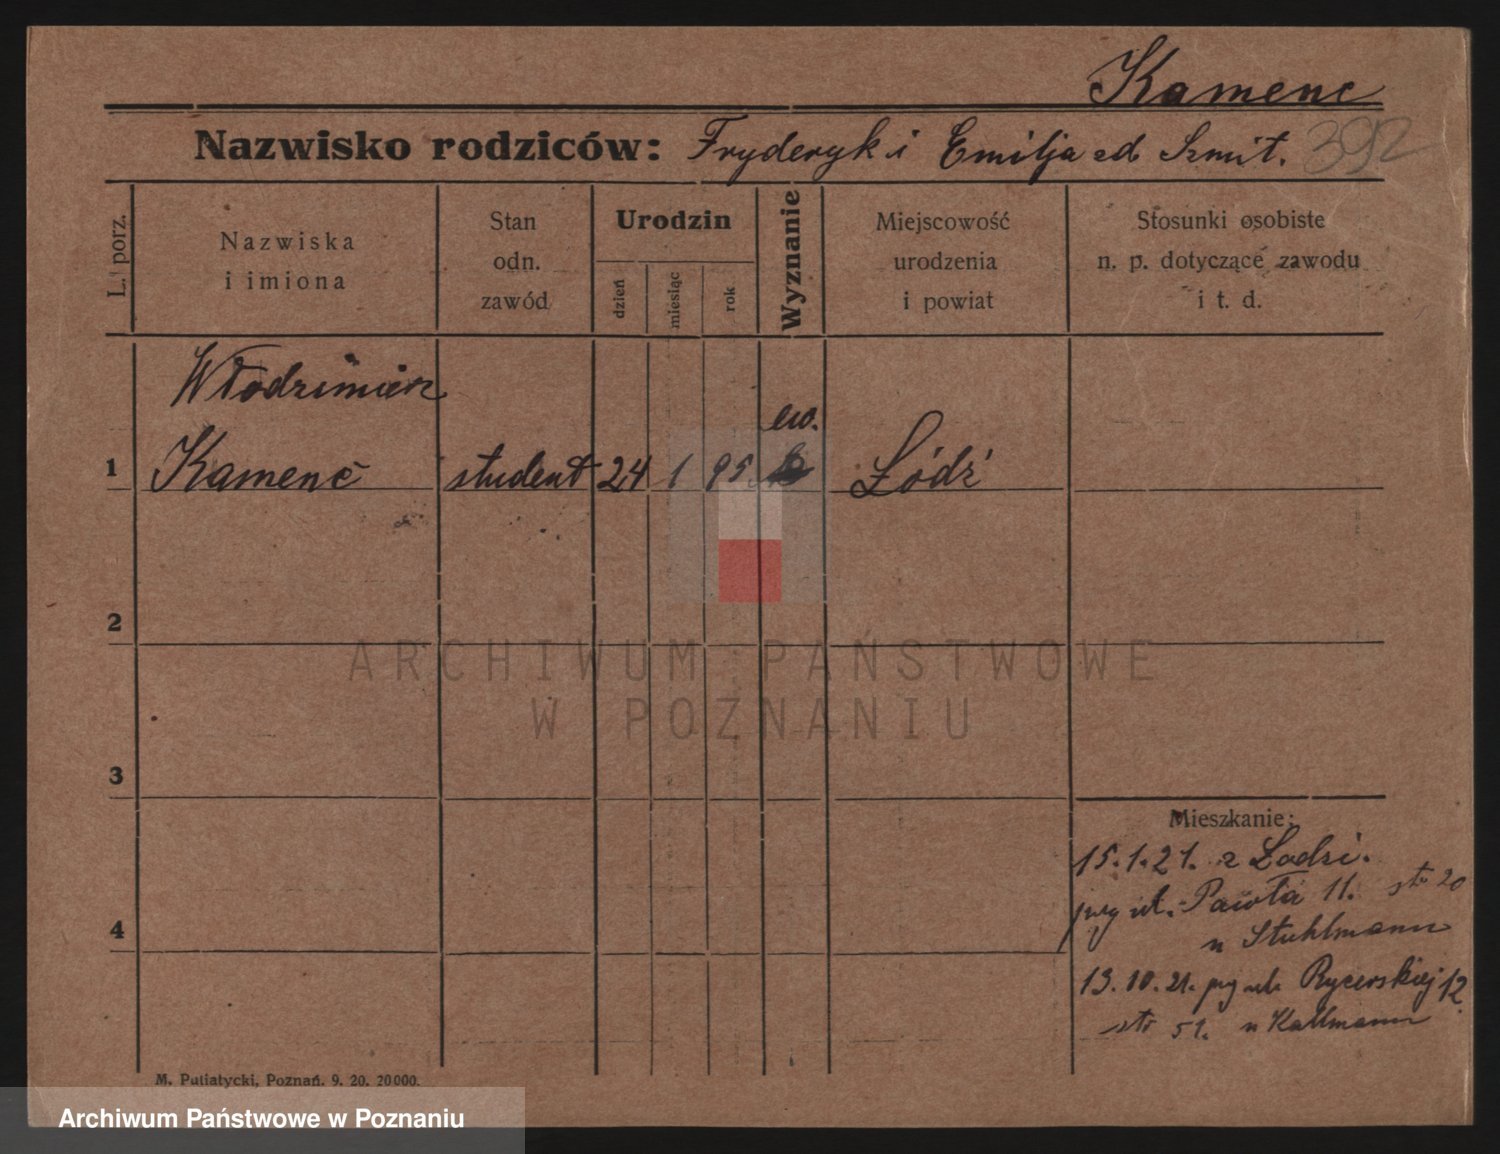 Kamenc
Nazwisko rodziców: Fryderyk i Emilja zd Szmit. 392
L. porz.
Nazwiska
i imiona
Stan
odn.
zawód
Urodzin
dzień
miesiąc
rok
Wyznanie
Miejscowość
urodzenia
i powiat
Stosunki osobiste
n. p. dotyczące zawodu
i t. d.
Włodzimierz
ew.
1 Kamenc student 24 1 95. Łódź
2
3
4
Mieszkanie:
15.1.21. z Łodzi.
przy ul. Pawła 11. str 20
u Stuhlmann
13.10.21. przy ul. Rycerskiej 12
str 51. u Kallmann
M. Putiatycki, Poznań. 9. 20. 20000.
ARCHIWUM PAŃSTWOWE
W POZNANIU
Archiwum Państwowe w Poznaniu